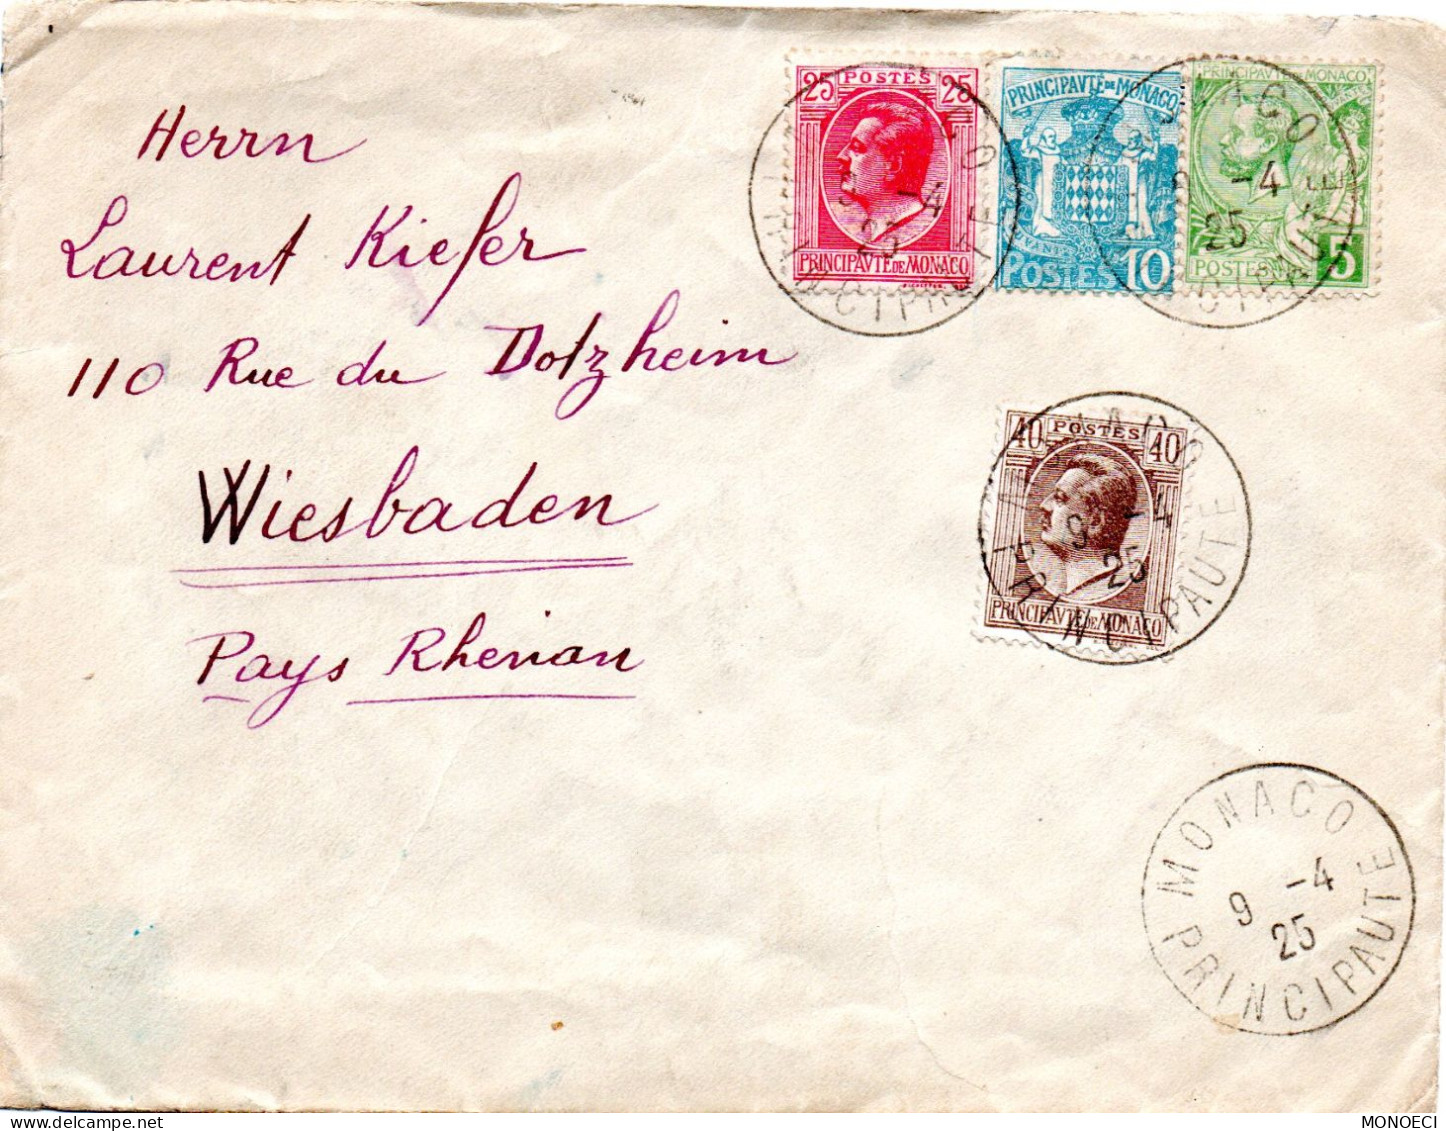 Herrn
Laurent Kiefer
110 Rue du Dotzheim
Wiesbaden
Pays Rhenan
25 POSTES 25
PRINCIPAVTÉ DE MONACO
PRINCIPAVTÉ DE MONACO
POSTES 10
PRINCIPAVTÉ DE MONACO
POSTES 5
9 -4
25
-4
25
40 POSTES 40
PRINCIPAVTÉ DE MONACO
9 -4
25
PRINCIPAUTE
MONACO
9 -4
25
PRINCIPAUTE
MONOECI / DELCAMPE.NET